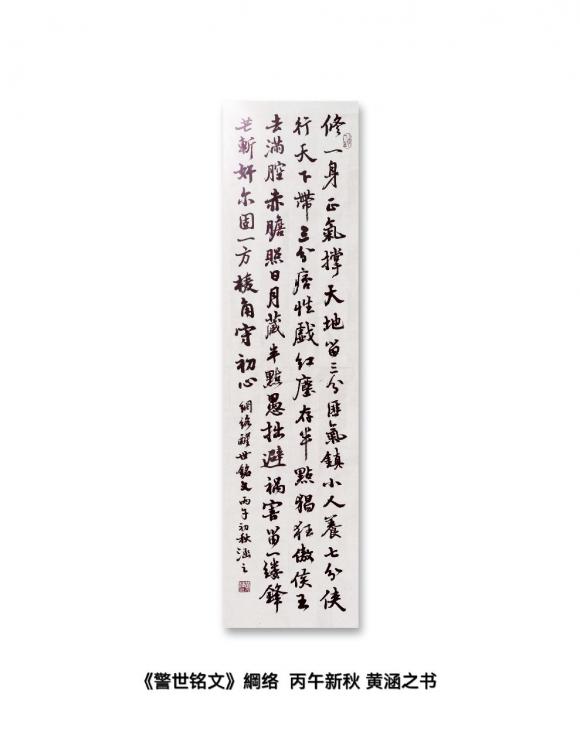 修一身正氣撑天地留三分匪氣鎮小人養七分侠
行天下帶三分痞性戲红塵存半點猖狂傲侯王
去滿腔赤膽照日月藏半點愚拙避禍害留一缕鋒
芒斬奸尔固一方棱角守初心 網络醒世銘文丙午初秋涵之
《警世铭文》綱络 丙午新秋 黄涵之书